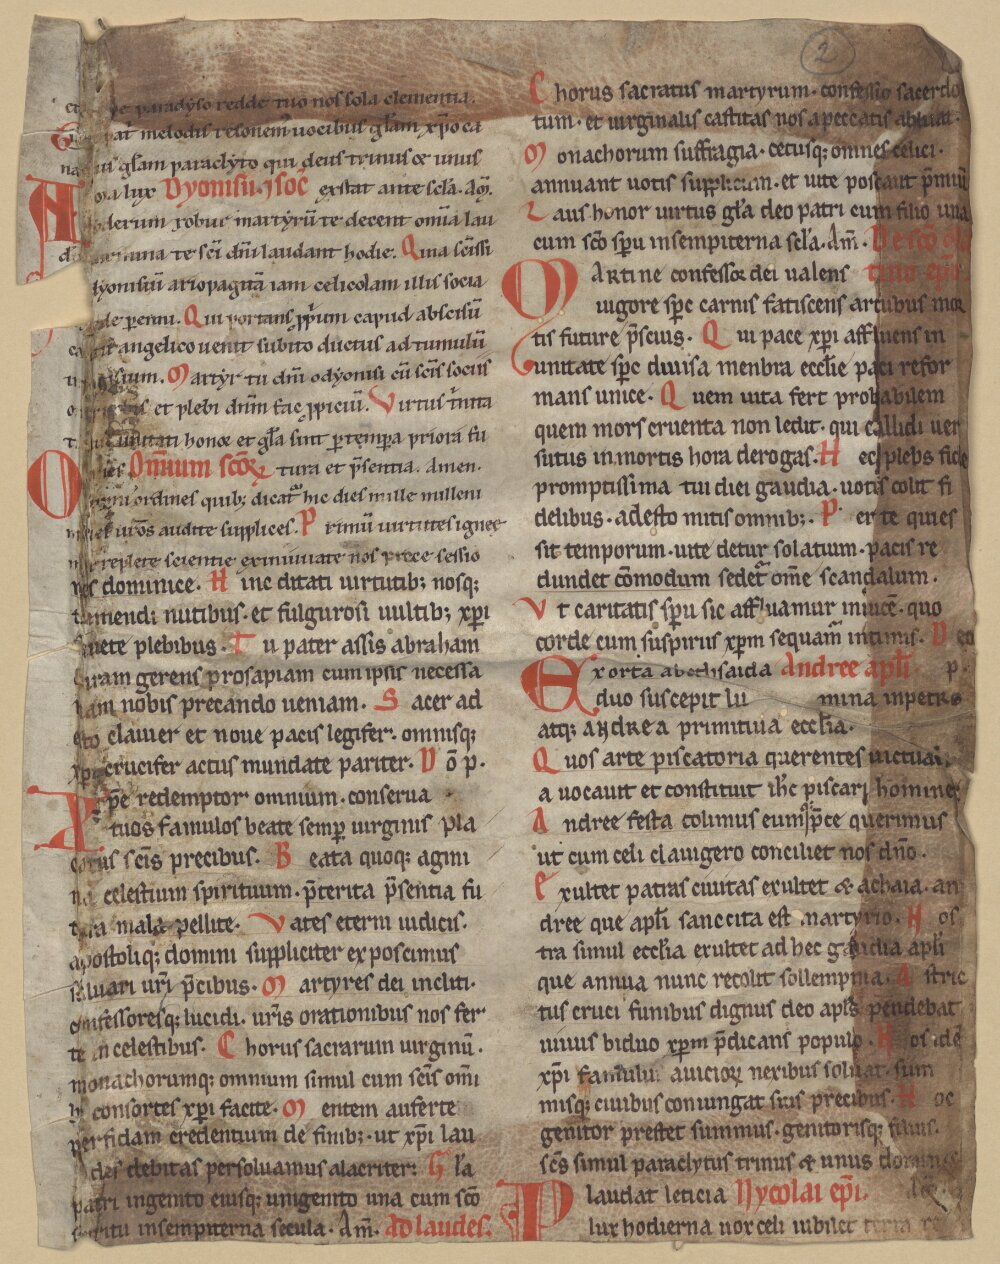 paradyso redde tuo nos sola clementia.
melodis resonem' uocibus gl'am xp̄o ca
gl'am paraclyto qui deus trinus & unus
lux Dyonisii. ⁊ soc̄ exstat ante scl'a. Am̄.
derum robur martyrū te decent omīa lau
te sc̄i dn̄i laudant hodie. Quia sc̄issi
dyonisiū ariopagitā iam celicolam illis socia
perenni. Qui portans ꝓprium capud abscisū
angelico uenit subito ductus ad tumulū
Martyr tu dn̄i o dyonisi cū sc̄is sociis
et plebi dn̄m fac ꝓpiciū. Virtus trina
unitati honor et gl'a sint per tempa priora fu
Omnium sc̄oꝝ tura et p̄sentia. Amen.
O ordines quib; dicat' hic dies mille milleni
uros audite supplices. Primū uirtutes ignee
replete scientie exinuiate nos prece sessio
nes dominice. Hinc ditati uirtutib; nosq;
tuendi nutibus. et fulgurosi uultib; xp̄i
plebibus. Tu pater assis abraham
ueram gerens prosapiam cum ipsis necessa
riam nobis precando ueniam. Sacer ad
esto clauiger et noue pacis legifer. omnisq;
xp̄i crucifer actus mundate pariter. Dō p.
Xp̄e redemptor omnium. conserua
tuos famulos beate semp uirginis pla
catus sc̄is precibus. Beata quoq; agmi
na celestium spirituum. p̄terita p̄sentia fu
tura mala pellite. Vates eterni iudicis.
apostoliq; domini suppliciter exposcimus
saluari ur̄i p̄cibus. Martyres dei incliti.
confessoresq; lucidi. ur̄is orationibus nos fer
te in celestibus. Chorus sacrarum uirginū.
monachorumq; omnium simul cum sc̄is om̄i
b; consortes xp̄i facite. Mentem auferte
perfidam credentium de finib; ut xp̄i lau
des debitas persoluamus alacriter. Gl'a
patri ingenito eiusq; unigenito una cum sc̄o
spiritu in sempiterna secula. Am̄. Ad laudes.
Chorus sacratus martyrum. confessio sacerdo
tum. et uirginalis castitas nos a peccatis abluat.
Monachorum suffragia. cetusq; omnes celici.
annuant uotis supplicum. et uite poscant p̄miū
Laus honor uirtus gl'a deo patri cum filio una
cum sc̄o sp̄u in sempiterna scl'a. Am̄. De sc̄o
MARTINE confessor dei ualens tino epi
uigore sp̄c carnis fatiscens artubus mor
tis future p̄scius. Qui pace xp̄i affluens in
unitate sp̄c diuisa menbra eccl'ie paci refor
mans unice. Quem uita fert probabilem
quem mors cruenta non ledit. qui callidi uer
sutus in mortis hora derogas. Hec plebs fide
promptissima tui diei gaudia. uotis colit fi
delibus. adesto mitis omnib;. Per te quies
sit temporum. uite detur solatium. pacis re
dundet cōmodum sedet' om̄e scandalum.
Vt caritatis sp̄u sic affluamur inuicē. quo
corde cum suspiriis xp̄m sequam̄ intimis. Deo
Exorta abethsaida Andree apl'i. p.
duo suscepit lu mina inpetro
atq; andrea primitiua eccl'ia.
Quos arte piscatoria querentes uictuali
a uocauit et constituit ih̄c piscari homines
Andree festa colimus eumq; p̄ce querimus
ut cum celi clauigero conciliet nos dn̄o.
Exultet patras ciuitas exultet & achaia. an
dree que apl'i sanccita est martyrio. Nos
tra simul eccl'ia exultet ad hec gaudia apl'i
que annua nunc recolit sollempnia. Astric
tus cruci funibus dignus deo apl's pendebat
uiuus biduo xp̄m p̄dicans populo. Nos idē
xp̄i famulū auicioꝝ nexibus soluat. sum
misq; ciuibus coniungat suis precibus. Hoc
genitor prestet summus. genitorisq; filius.
sc̄s simul paraclytus trinus & unus dominus
laudat leticia Nycolai ep̄i.
P lux hodierna uox celi iubilet terra